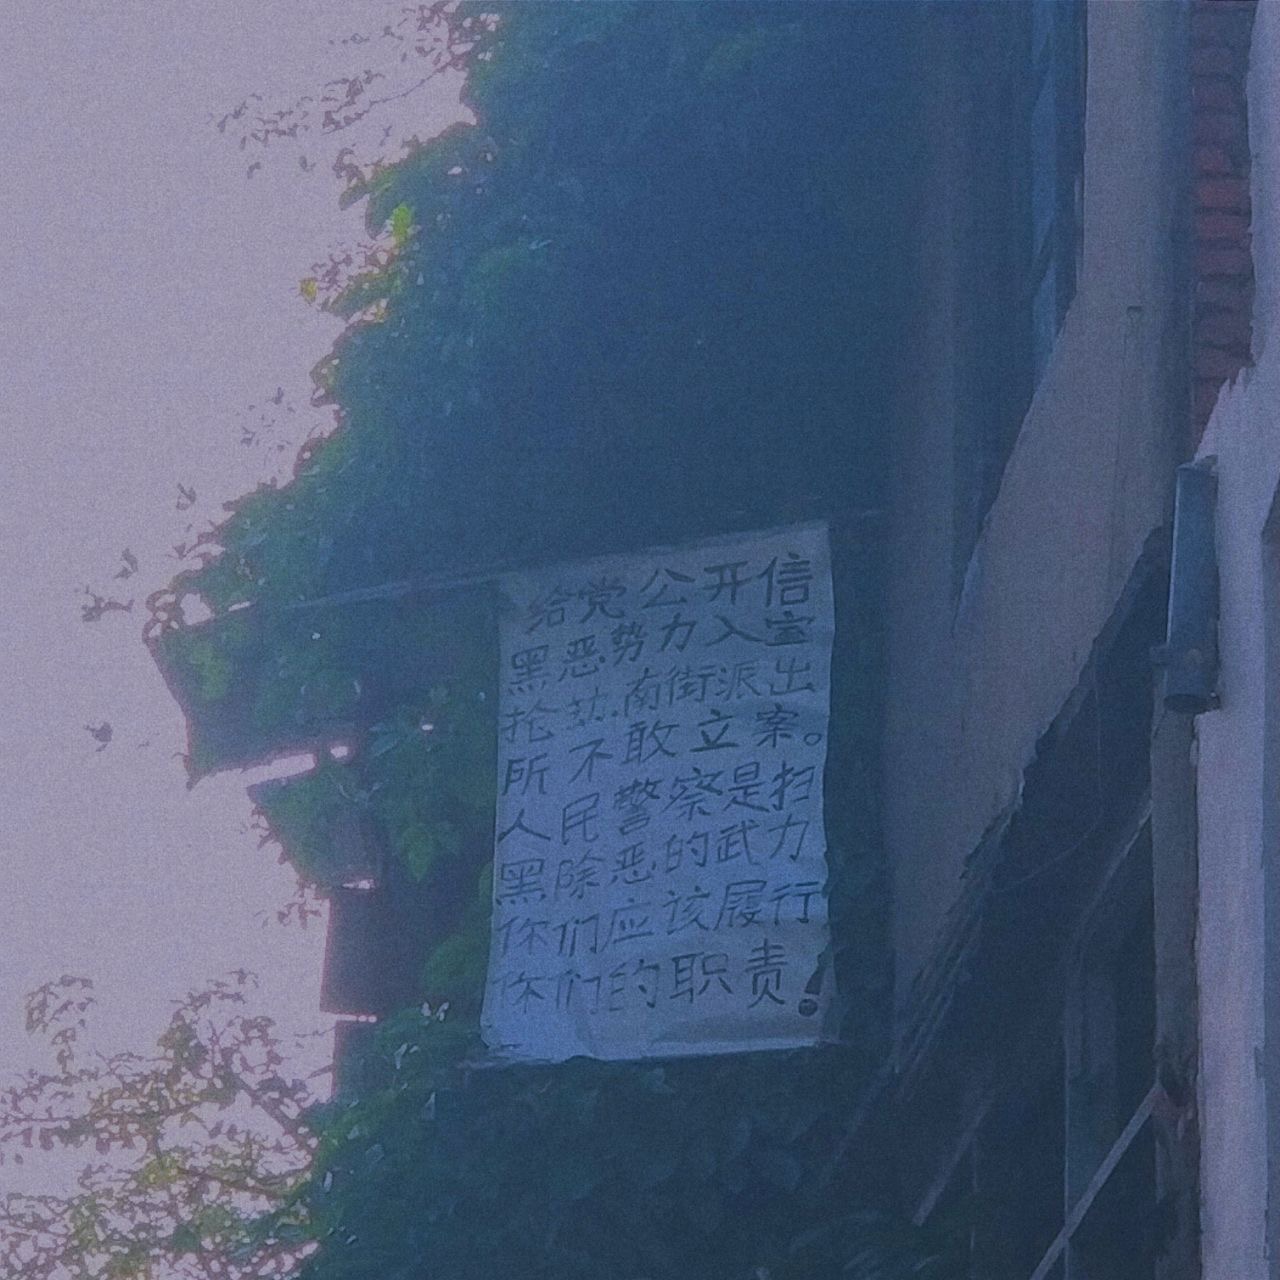 给党公开信
黑恶势力入室
抢劫.南街派出
所不敢立案。
人民警察是扫
黑除恶的武力
你们应该履行
你们的职责!